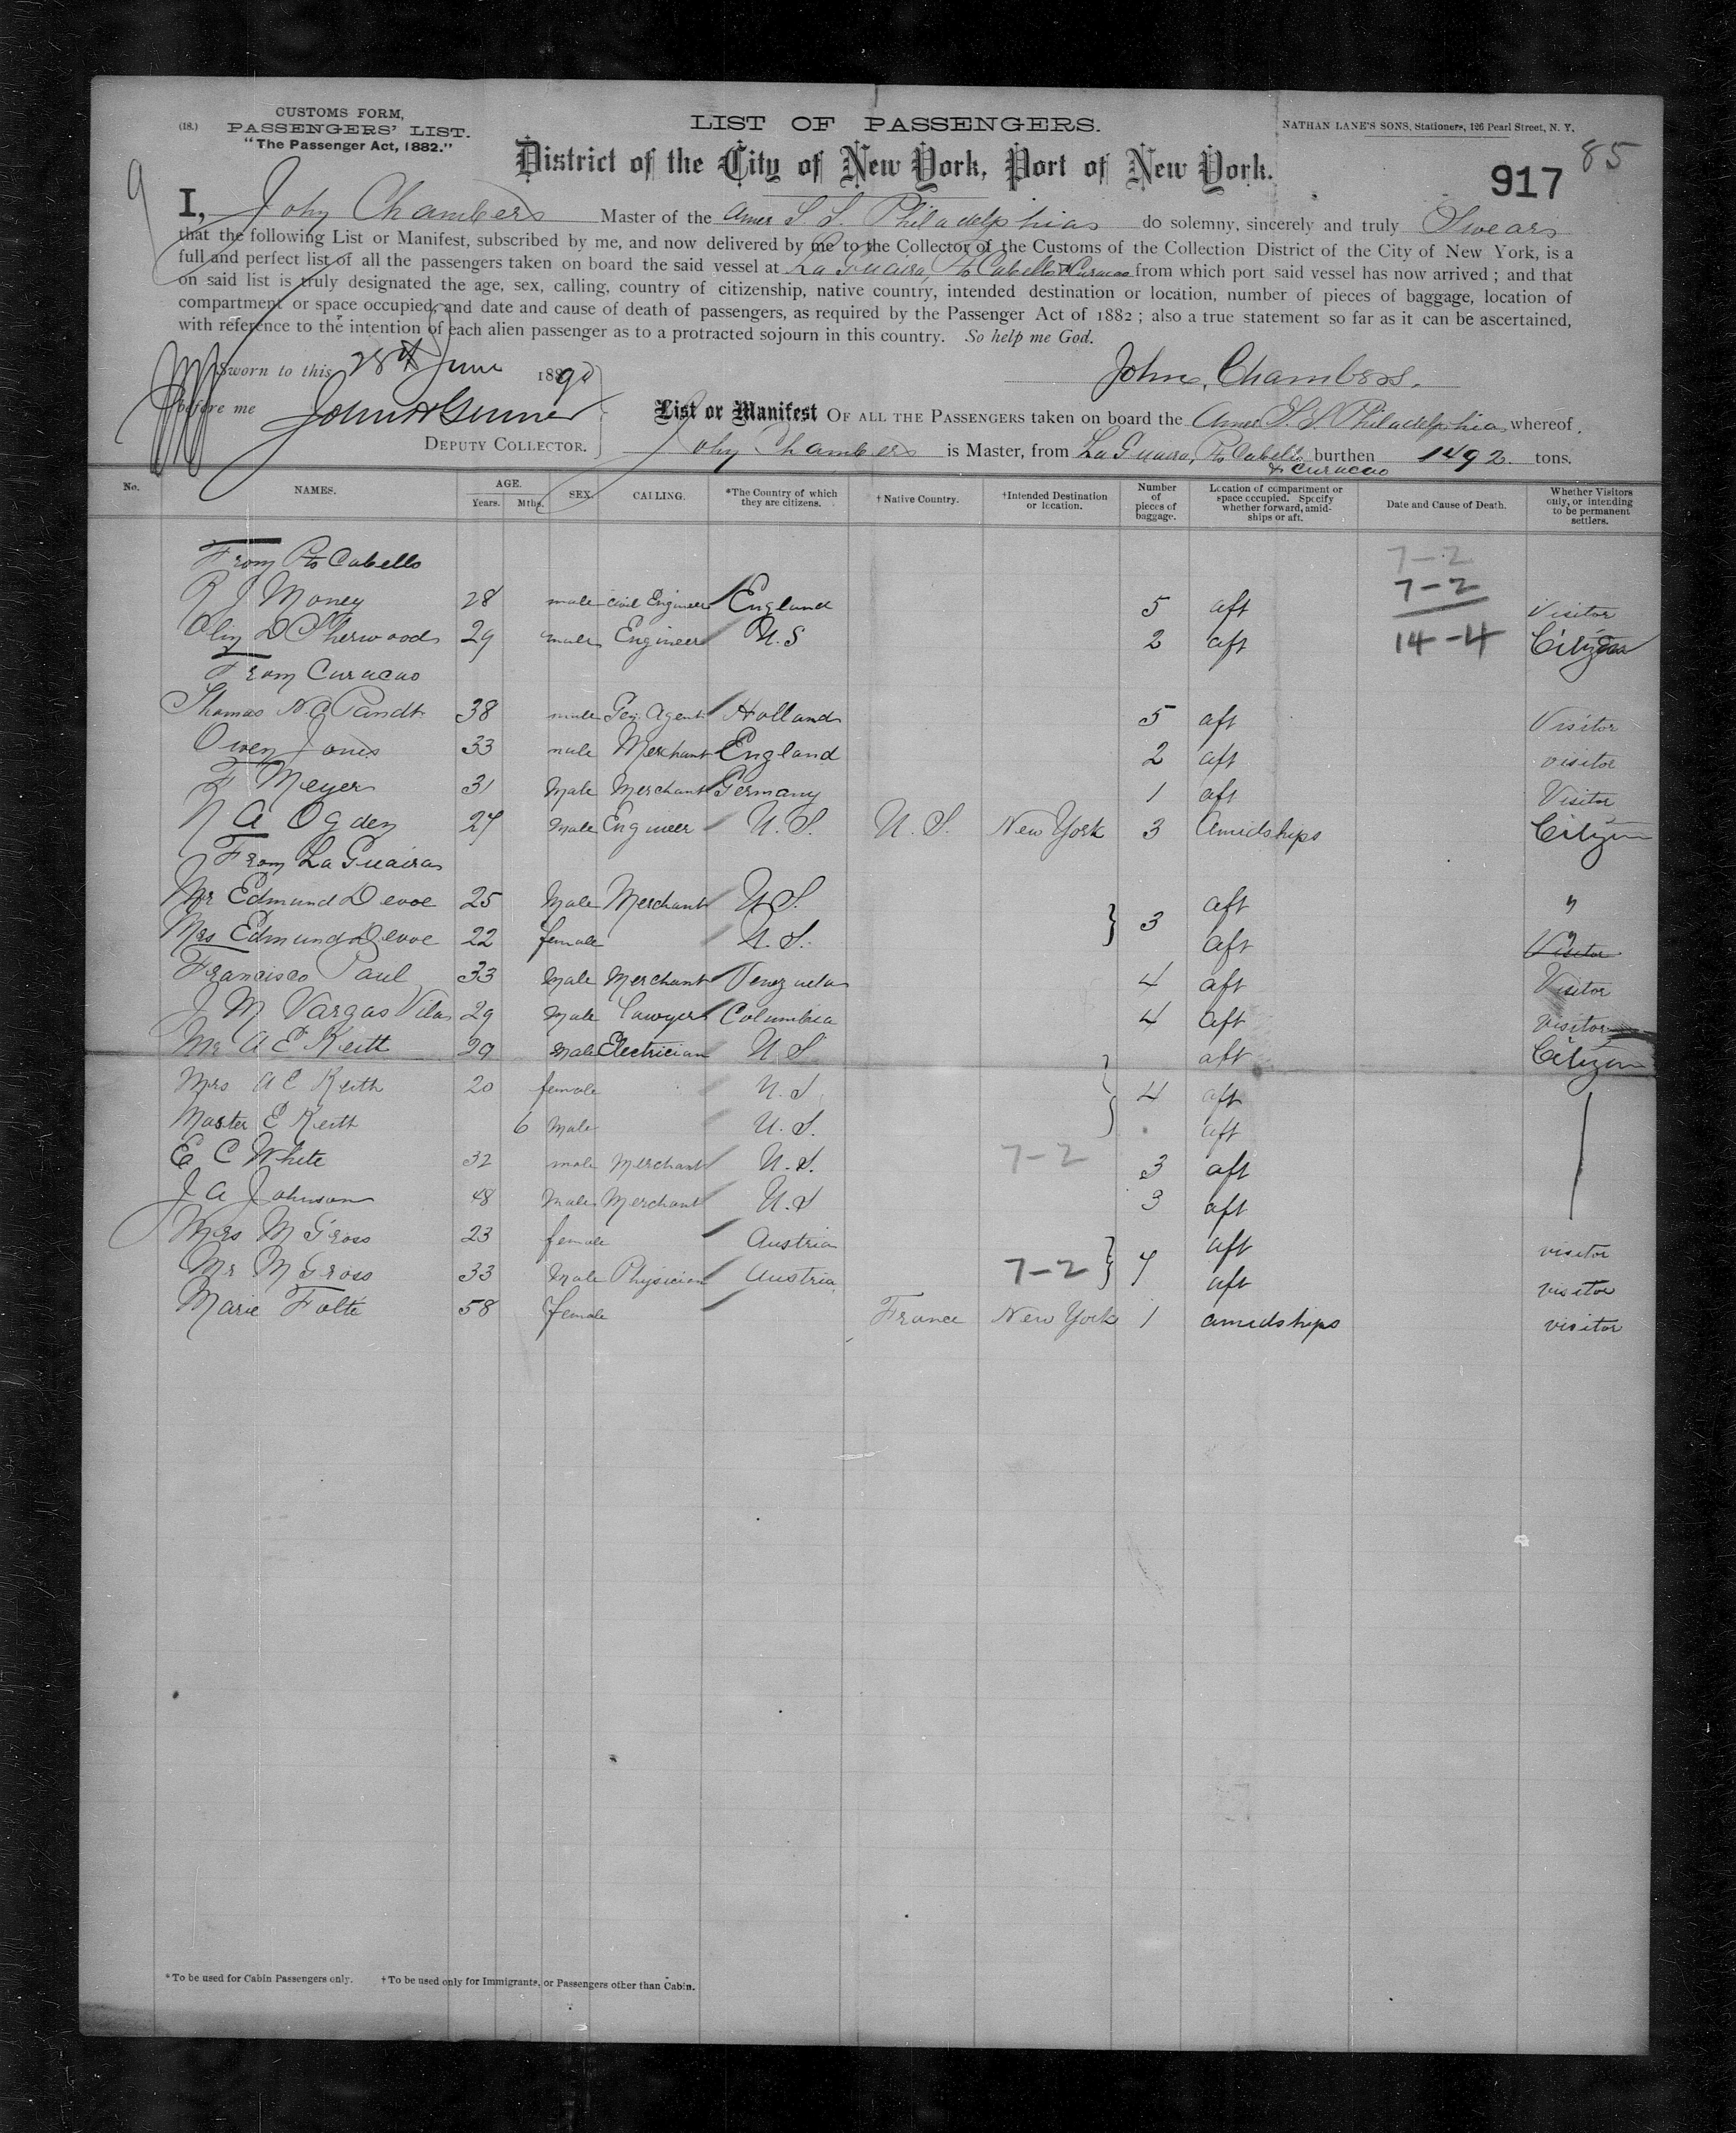 CUSTOMS FORM,
(18.) PASSENGERS' LIST.
"The Passenger Act, 1882."
LIST OF PASSENGERS.
NATHAN LANE'S SONS, Stationers, 126 Pearl Street, N. Y.
85
District of the City of New York, Port of New York.
917
9
I, John Chambers Master of the Amer S. S. Philadelphia do solemny, sincerely and truly Swear
that the following List or Manifest, subscribed by me, and now delivered by me to the Collector of the Customs of the Collection District of the City of New York, is a
full and perfect list of all the passengers taken on board the said vessel at La Guaira, Pto Cabello & Curacao from which port said vessel has now arrived; and that
on said list is truly designated the age, sex, calling, country of citizenship, native country, intended destination or location, number of pieces of baggage, location of
compartment or space occupied, and date and cause of death of passengers, as required by the Passenger Act of 1882; also a true statement so far as it can be ascertained,
with reference to the intention of each alien passenger as to a protracted sojourn in this country. So help me God.
Sworn to this 28th June 1890
John Chambers.
before me
DEPUTY COLLECTOR.
List or Manifest OF ALL THE PASSENGERS taken on board the Amer S. S. Philadelphia whereof
John Chambers is Master, from La Guaira, Pto Cabello & Curacao burthen 1492 tons.
No. NAMES. AGE. Years. Mths. SEX CALLING. *The Country of which they are citizens. † Native Country. †Intended Destination or location. Number of pieces of baggage. Location of compartment or space occupied. Specify whether forward, amidships or aft. Date and Cause of Death. Whether Visitors only, or intending to be permanent settlers.
From Pto Cabello 7-2
R J Money 28 male civil Engineer England 5 aft 7-2 Visitor
Olin D Sherwood 29 male Engineer U.S 2 aft 14-4 Citizen
From Curacao
Thomas 38 male Gen. Agent Holland 5 aft Visitor
Owen Jones 33 male Merchant England 2 aft visitor
F Meyer 31 Male Merchant Germany 1 aft Visitor
N A Ogden 27 Male Engineer U.S. U.S. New York 3 Amidships Citizen
From La Guaira
Mr Edmund Devoe 25 Male Merchant U.S. 3 aft "
Mrs Edmund Devoe 22 female U.S. aft " Visitor
Francisco Paul 33 Male Merchant Venezuela 4 aft Visitor
J M Vargas Vila 29 Male Lawyer Columbia 4 aft Visitor
Mr A E Keith 29 Male Electrician U S aft Citizen
Mrs A E Keith 20 female U.S 4 aft
Master E Keith 6 Male U.S. aft
E C White 32 male Merchant U.S. 7-2 3 aft
J A Johnson 48 Male Merchant U.S 3 aft
Mrs M Gross 23 female Austria aft visitor
Mr M Gross 33 Male Physician Austria 7-2 7 aft visitor
Marie Folté 58 female France New York 1 amidships visitor
*To be used for Cabin Passengers only. †To be used only for Immigrants, or Passengers other than Cabin.